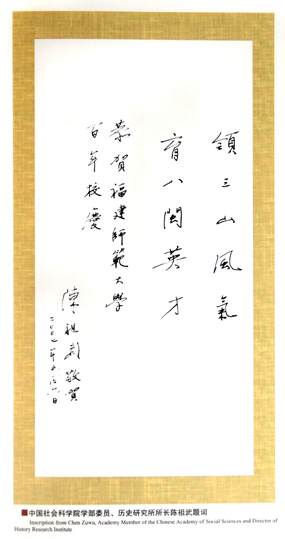 領三山風氣
育八閩英才
恭賀福建師範大學
百年校慶
陳祖武敬賀
二〇〇七年五月廿八日
中国社会科学院学部委员、历史研究所所长陈祖武题词
Inscription from Chen Zuwu, Academy Member of the Chinese Academy of Social Sciences and Director of
History Research Institute